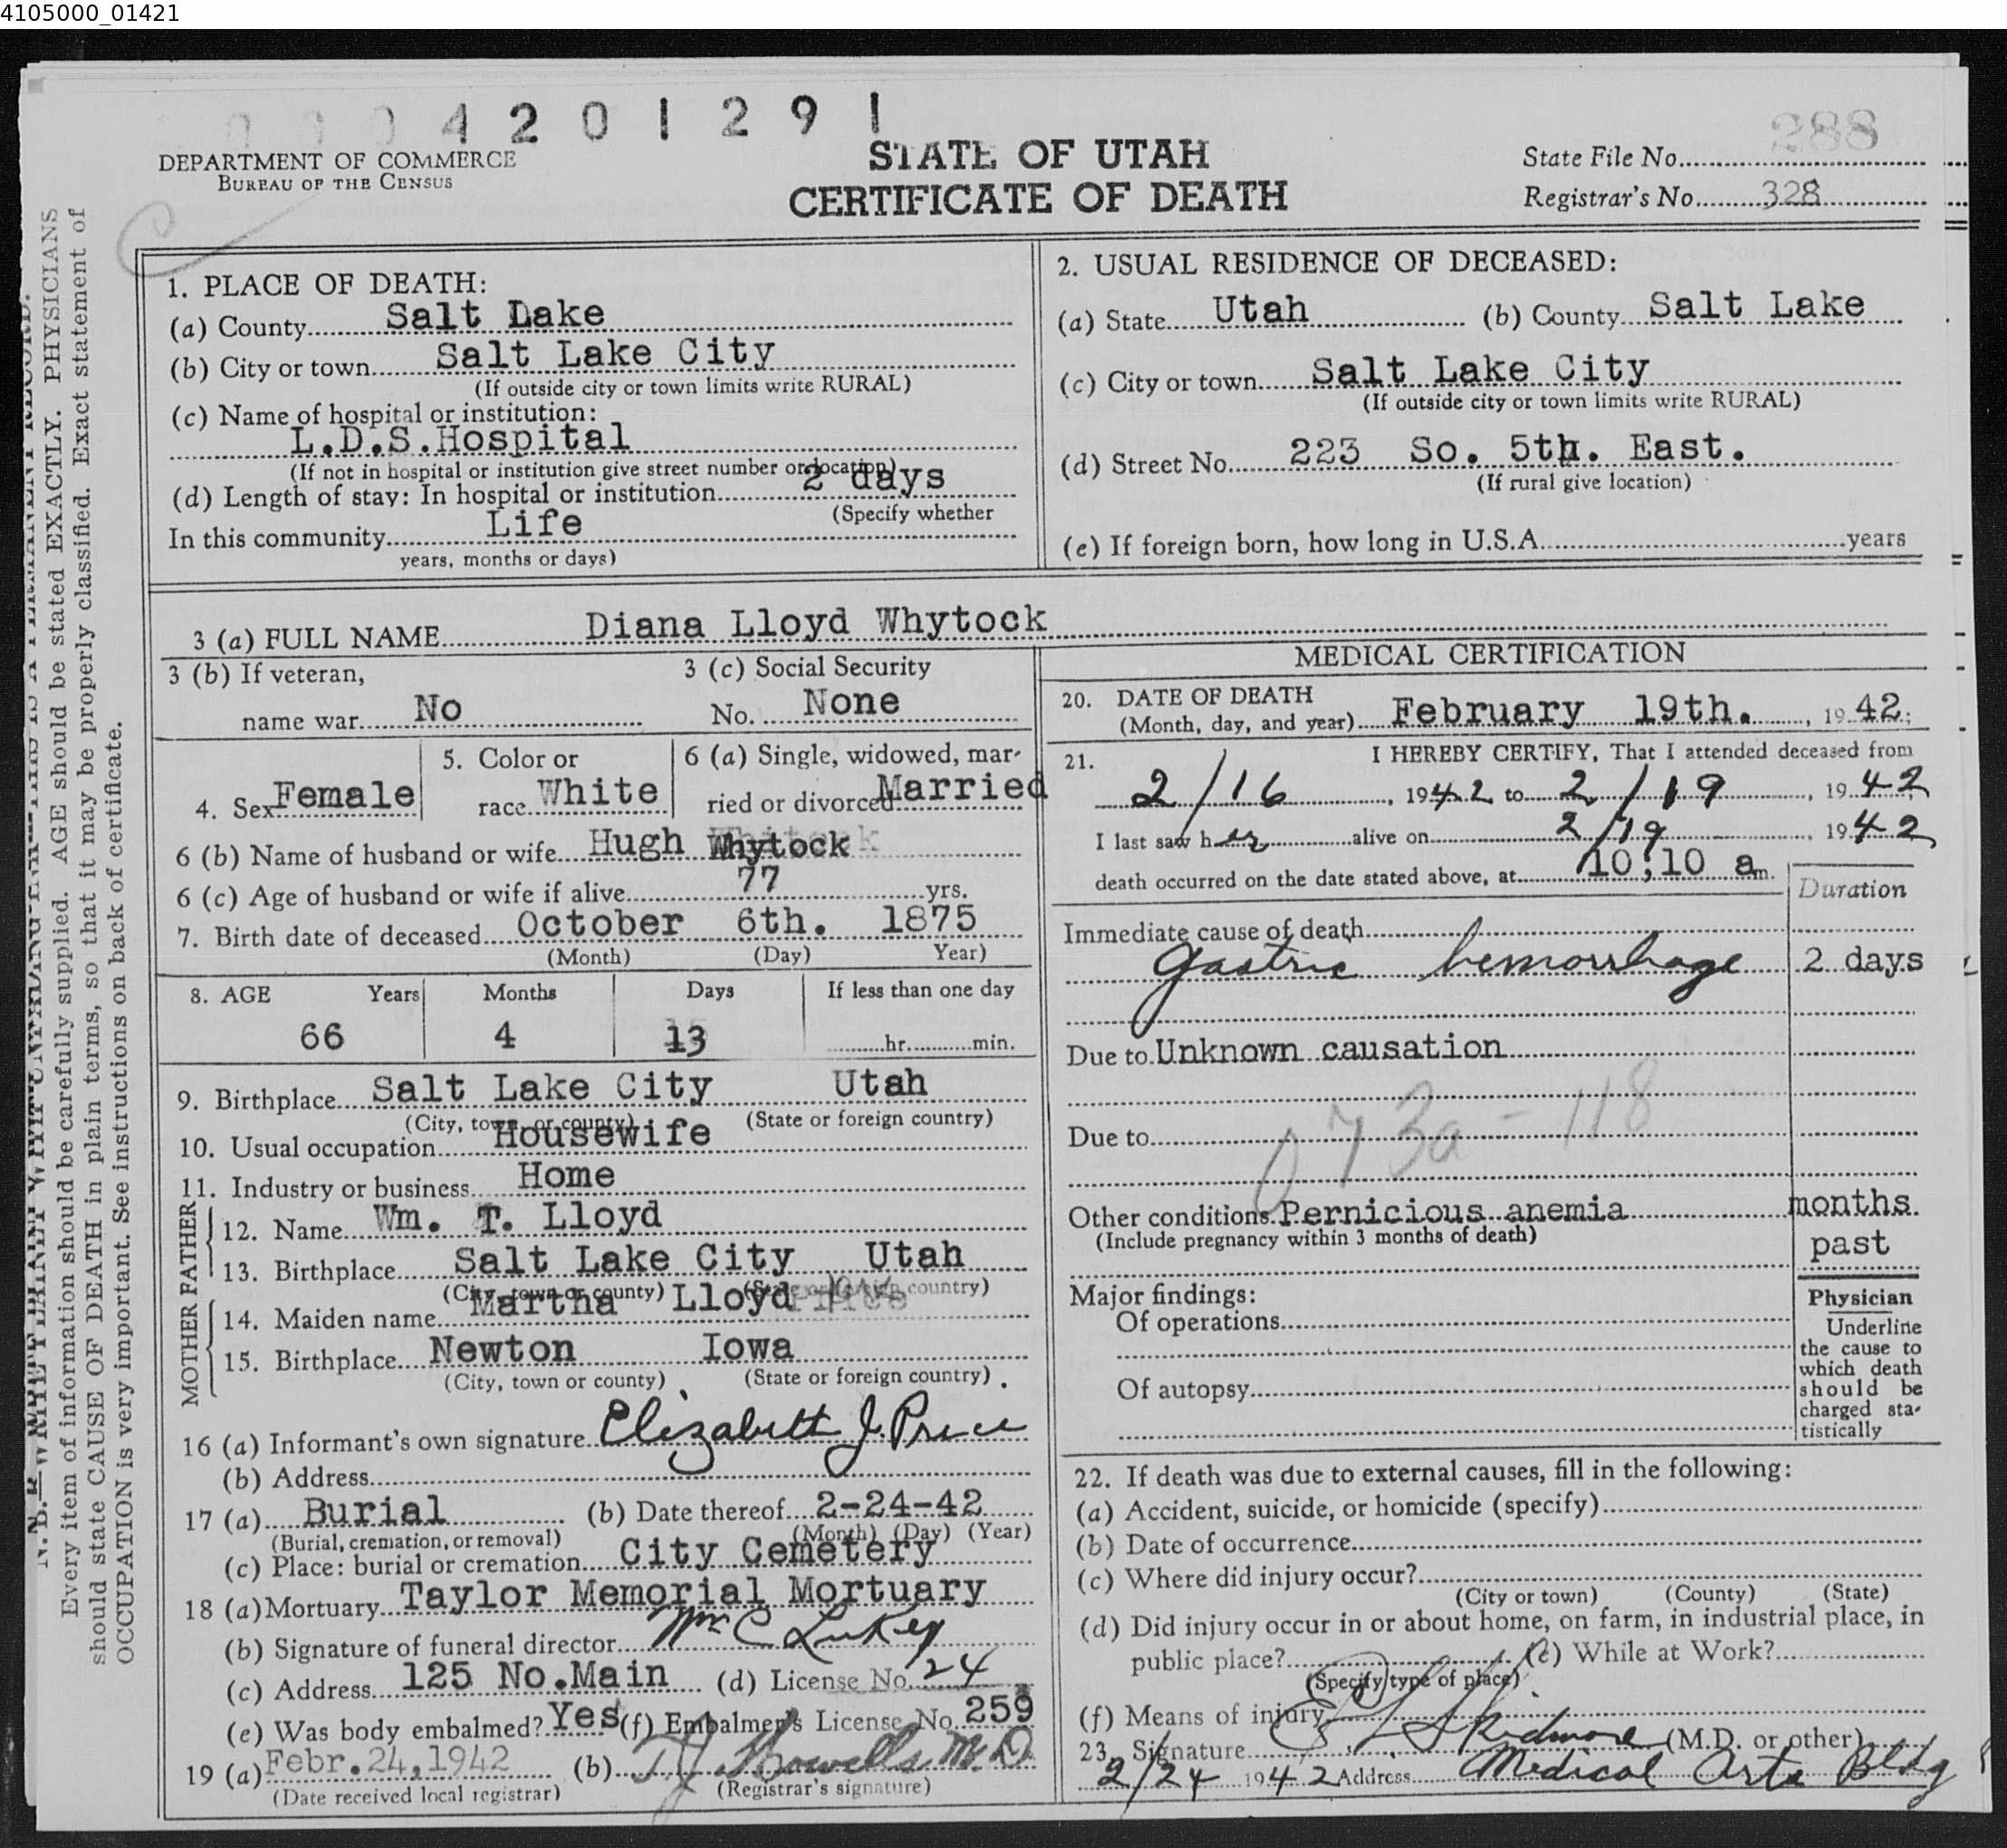 4105000_01421
4 2 0 1 2 9 1
288
DEPARTMENT OF COMMERCE
BUREAU OF THE CENSUS
STATE OF UTAH
CERTIFICATE OF DEATH
State File No.
Registrar's No. 328
C
1. PLACE OF DEATH:
(a) County Salt Lake
(b) City or town Salt Lake City
(If outside city or town limits write RURAL)
(c) Name of hospital or institution:
L.D.S.Hospital
(If not in hospital or institution give street number or location)
(d) Length of stay: In hospital or institution 2 days
(Specify whether
In this community Life
years, months or days)
2. USUAL RESIDENCE OF DECEASED:
(a) State Utah (b) County Salt Lake
(c) City or town Salt Lake City
(If outside city or town limits write RURAL)
(d) Street No. 223 So. 5th. East.
(If rural give location)
(e) If foreign born, how long in U.S.A. years
3 (a) FULL NAME Diana Lloyd Whytock
3 (b) If veteran,
name war No
3 (c) Social Security
No. None
4. Sex Female
5. Color or
race White
6 (a) Single, widowed, mar-
ried or divorced Married
6 (b) Name of husband or wife Hugh Whytock
6 (c) Age of husband or wife if alive 77 yrs.
7. Birth date of deceased October 6th. 1875
(Month) (Day) Year)
8. AGE Years Months Days If less than one day
66 4 13 hr. min.
9. Birthplace Salt Lake City Utah
(City, town, or county) (State or foreign country)
10. Usual occupation Housewife
11. Industry or business Home
FATHER
12. Name Wm. T. Lloyd
13. Birthplace Salt Lake City Utah
(City, town or county) (State or foreign country)
MOTHER
14. Maiden name Martha Lloyd Price
15. Birthplace Newton Iowa
(City, town or county) (State or foreign country)
16 (a) Informant's own signature Elizabeth J. Price
(b) Address
17 (a) Burial (b) Date thereof 2-24-42
(Burial, cremation, or removal) (Month) (Day) (Year)
(c) Place: burial or cremation City Cemetery
18 (a) Mortuary Taylor Memorial Mortuary
(b) Signature of funeral director Wm C Lukey
(c) Address 125 No.Main (d) License No. 24
(e) Was body embalmed? Yes (f) Embalmer's License No. 259
19 (a) Febr.24,1942 (b) T J Howells M.D.
(Date received local registrar) (Registrar's signature)
MEDICAL CERTIFICATION
20. DATE OF DEATH
(Month, day, and year) February 19th., 1942;
21. I HEREBY CERTIFY, That I attended deceased from
2/16, 1942 to 2/19, 1942
I last saw her alive on 2/19, 1942
death occurred on the date stated above, at 10:10 a m.
Duration
Immediate cause of death
Gastric hemorrhage 2 days
Due to Unknown causation
073a - 118
Due to
Other conditions Pernicious anemia months
(Include pregnancy within 3 months of death) past
Major findings:
Of operations
Of autopsy
Physician
Underline
the cause to
which death
should be
charged sta-
tistically
22. If death was due to external causes, fill in the following:
(a) Accident, suicide, or homicide (specify)
(b) Date of occurrence
(c) Where did injury occur?
(City or town) (County) (State)
(d) Did injury occur in or about home, on farm, in industrial place, in
public place? (e) While at Work?
(Specify type of place)
(f) Means of injury
23. Signature E L Skidmore (M.D. or other)
2/24 1942 Address Medical Arts Bldg
N. B.—WRITE PLAINLY WITH UNFADING INK—THIS IS A PERMANENT RECORD.
Every item of information should be carefully supplied. AGE should be stated EXACTLY. PHYSICIANS
should state CAUSE OF DEATH in plain terms, so that it may be properly classified. Exact statement of
OCCUPATION is very important. See instructions on back of certificate.